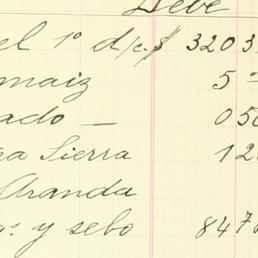 Debe
el 1º d/c. $ 320 3
maiz 5 -
ado — 0 50
ra Sierra 1 2
Aranda
as. y sebo 84 7